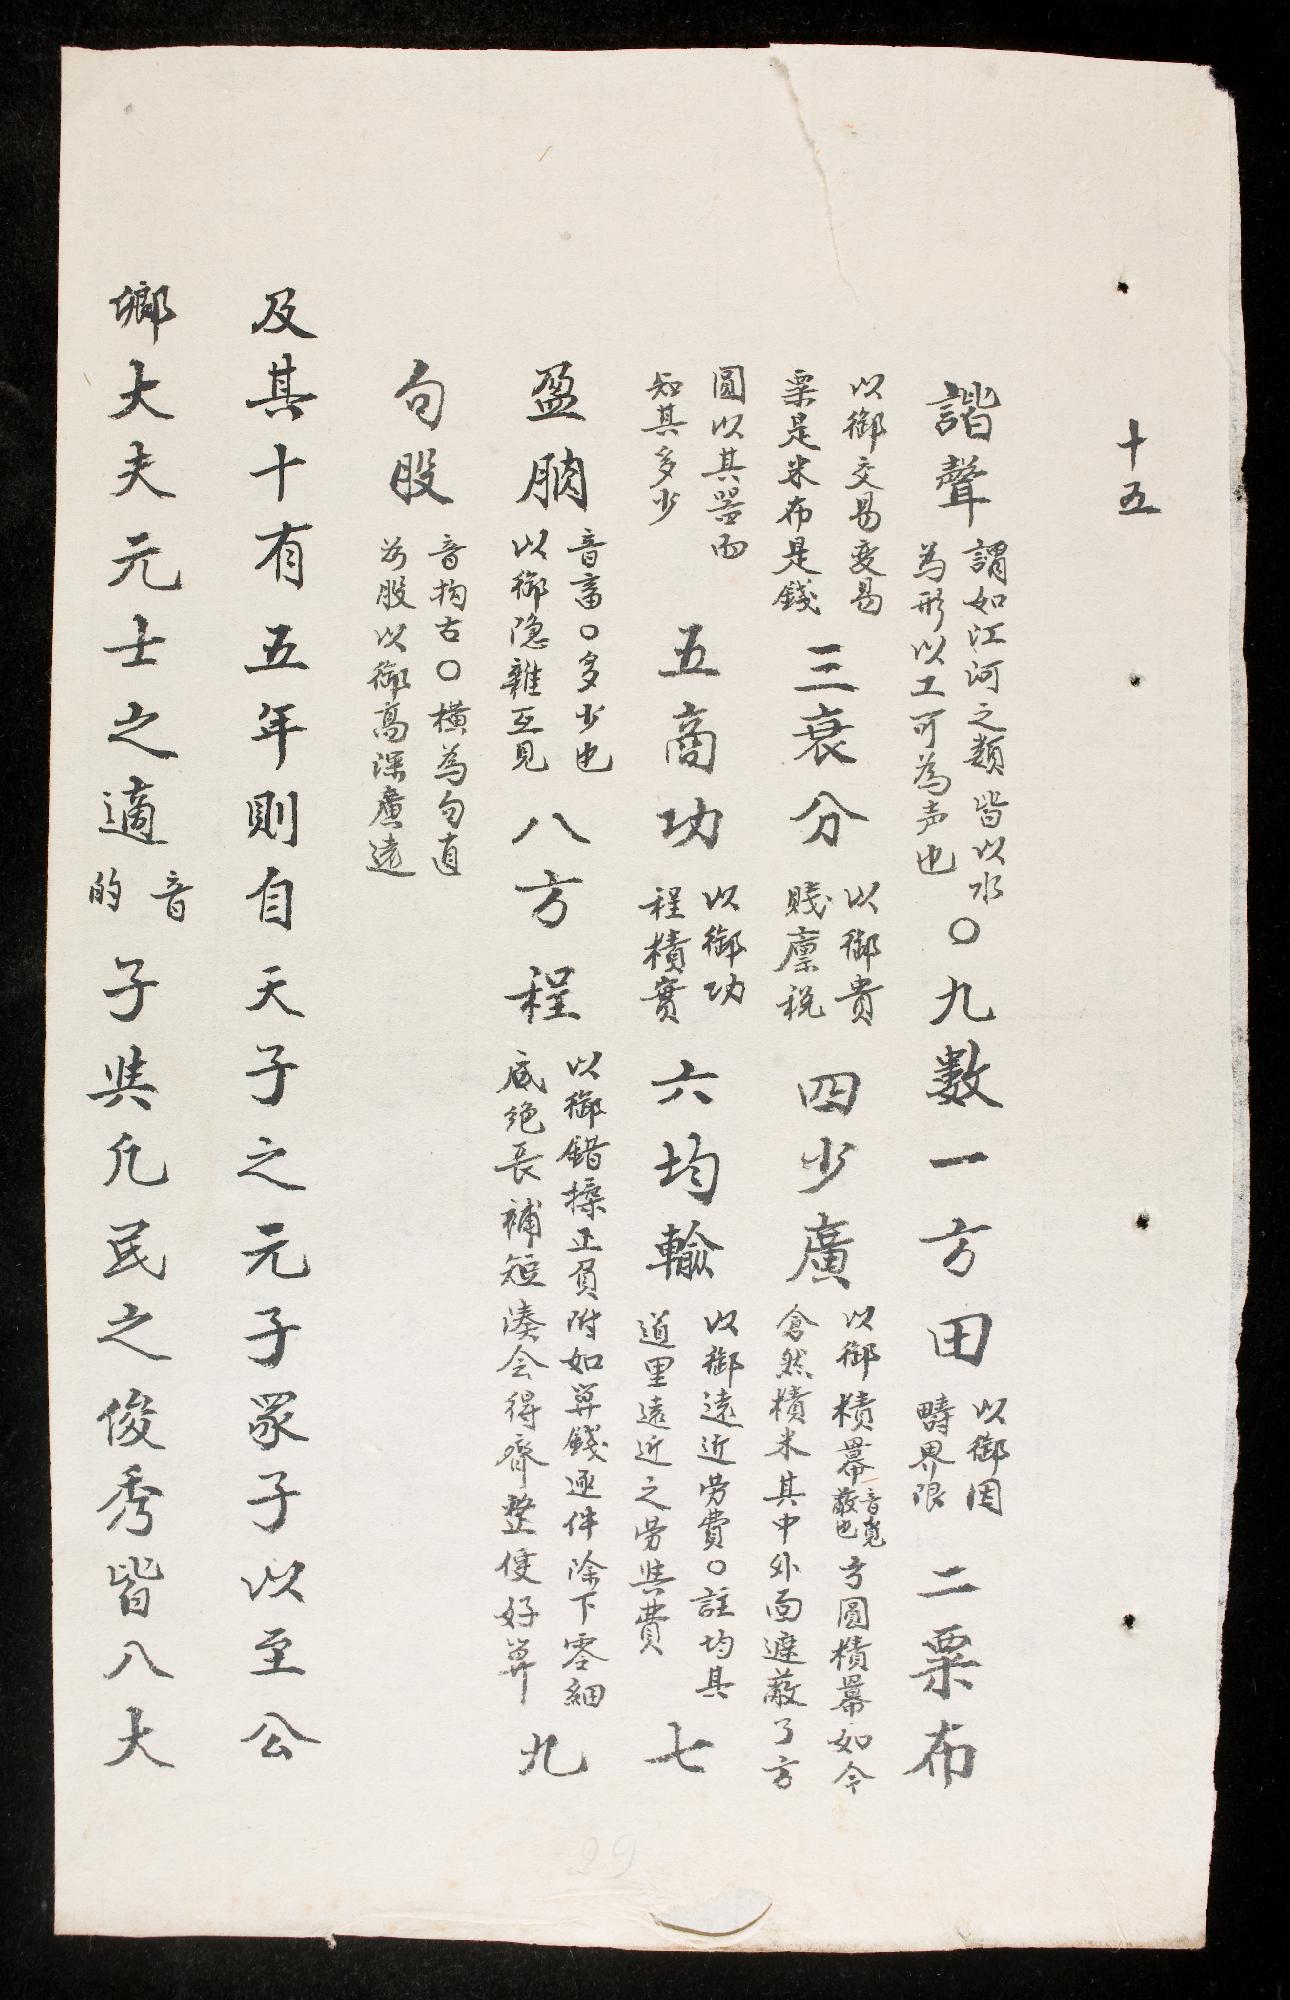 十五
諧聲 謂如江河之類皆以水為形以工可為声也 〇九數一方田 以御囯疇界限 二粟布
以御交易変易粟是米布是錢 三衰分 以御貴賤廪税 四少廣 以御積羃 音覓蔽也 方圓積羃如今倉然積米其中外面遮蔽了方
圓以其器而知其多少 五商功 以御功程積實 六均輸 以御遠近労費〇註均其道里遠近之労與費 七
盈朒 音畜〇多少也以御隐雜互見 八方程 以御錯揉正負附如筭錢逐件除下零細底绝長補短湊会得齊整便好筭 九
句股 音构古〇橫為勾直為股以御高深廣遠
及其十有五年則自天子之元子冢子以至公
鄉大夫元士之適 音的 子與凢民之俊秀皆八大
29